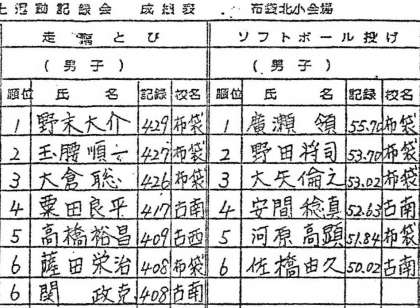 上運動記録会 成績表 布袋北小会場
走幅とび ソフトボール投げ
（男子） （男子）
順位 氏名 記録 校名 順位 氏名 記録 校名
1 野末大介 429 布袋 1 廣瀬領 55.70 布袋
2 玉腰順一 427 布袋 2 野田将司 53.70 布袋
3 大倉聡 426 布袋 3 大矢倫之 53.02 布袋
4 粟田良平 417 古南 4 安間稔真 52.63 古南
5 高橋裕昌 409 古西 5 河原高顕 51.84 布袋
6 薩田栄治 408 布袋 6 佐橋由久 50.02 古南
6 関政克 408 古南